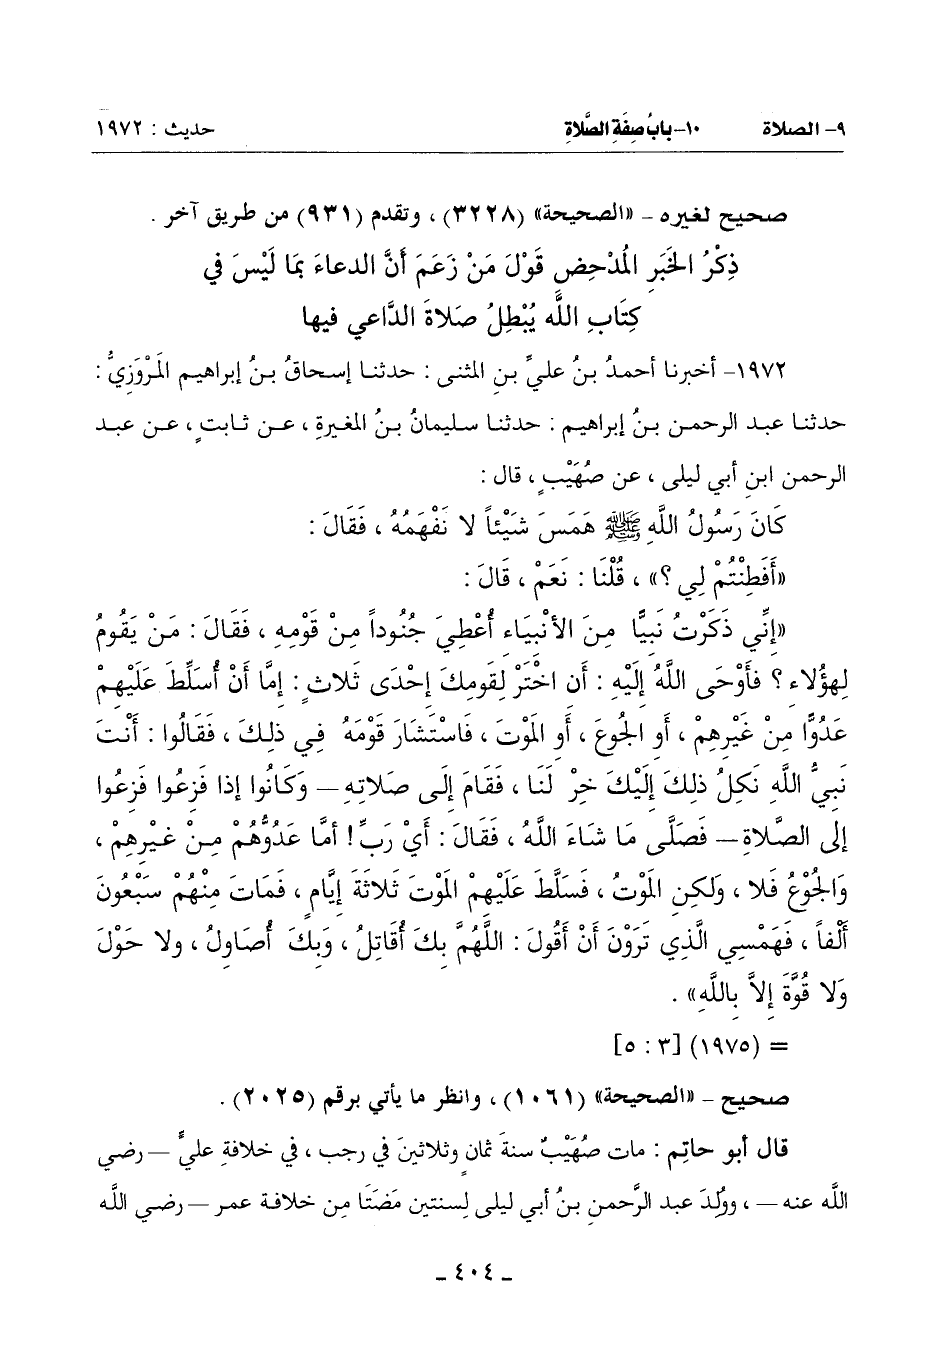 ٩- الصلاة ١٠- بابُ صِفَةِ الصَّلاةِ حديث : ١٩٧٢
صحيح لغيره - «الصحيحة» (٣٢٢٨) ، وتقدم (٩٣١) من طريق آخر .
ذِكْرُ الخَبَرِ المُدْحِضِ قَوْلَ مَنْ زَعَمَ أَنَّ الدعاءَ بمَا لَيْسَ في
كِتَابِ اللَّهِ يُبْطِلُ صَلاةَ الدَّاعي فيها
١٩٧٢- أخبرنا أحمدُ بنُ عليِّ بنِ المثنى : حدثنا إسحاقُ بنُ إبراهيم المَرْوَزِيُّ :
حدثنا عبد الرحمن بنُ إبراهيم : حدثنا سليمانُ بنُ المغيرةِ ، عن ثابتٍ ، عن عبد
الرحمن ابنِ أبي ليلى ، عن صُهَيْبٍ ، قال :
كَانَ رَسُولُ اللَّهِ ﷺ هَمَسَ شَيْئاً لا نَفْهَمُهُ ، فَقَالَ :
«أَفَطِنْتُمْ لِي ؟» ، قُلْنَا : نَعَمْ ، قَالَ :
«إنِّي ذَكَرْتُ نَبِيًّا مِنَ الأنْبِيَاءِ أُعْطِيَ جُنُوداً مِنْ قَوْمِهِ ، فَقَالَ : مَنْ يَقُومُ
لِهؤُلاءِ ؟ فأَوْحَى اللَّهُ إلَيْهِ : أَن اخْتَرْ لِقَومِكَ إحْدَى ثَلاثٍ : إمَّا أَنْ أُسَلِّطَ عَلَيْهِمْ
عَدُوًّا مِنْ غَيْرِهِمْ ، أو الجُوعَ ، أو المَوْتَ ، فَاسْتَشَارَ قَوْمَهُ فِي ذلِكَ ، فَقَالُوا : أَنْتَ
نَبيُّ اللَّهِ نَكِلُ ذلِكَ إلَيْكَ خِرْ لَنَا ، فَقَامَ إلَى صَلاتِهِ — وَكَانُوا إذا فَزِعُوا فَزِعُوا
إلَى الصَّلاةِ — فَصَلَّى مَا شَاءَ اللَّهُ ، فَقَالَ : أَيْ رَبِّ ! أَمَّا عَدُوُّهُمْ مِنْ غَيْرِهِمْ ،
وَالجُوْعُ فَلا ، وَلكِنِ المَوْتُ ، فَسَلَّطَ عَلَيْهِمْ المَوْتَ ثَلاثَةَ إيَّامٍ ، فَمَاتَ مِنْهُمْ سَبْعُونَ
أَلْفاً ، فَهَمْسِي الَّذِي تَرَوْنَ أَنْ أَقُولَ : اللَّهُمَّ بِكَ أُقَاتِلُ ، وَبِكَ أُصَاوِلُ ، ولا حَوْلَ
وَلا قُوَّةَ إلاَّ بِاللَّهِ» .
= (١٩٧٥) [٣ : ٥]
صحيح - «الصحيحة» (١٠٦١) ، وانظر ما يأتي برقم (٢٠٢٥) .
قال أبو حاتِم : مات صُهَيْبٌ سنةَ ثمانٍ وثلاثينَ في رجب ، في خلافةِ عليٍّ — رضي
اللَّه عنه — ، ووُلِدَ عبد الرَّحمنِ بنُ أبي ليلى لِسنتين مَضَتَا مِن خلافة عمر — رضي اللَّه
- ٤٠٤ -